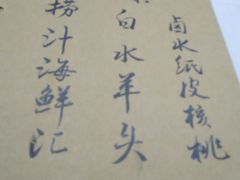 卤水纸皮核桃
白水羊头
捞汁海鲜汇